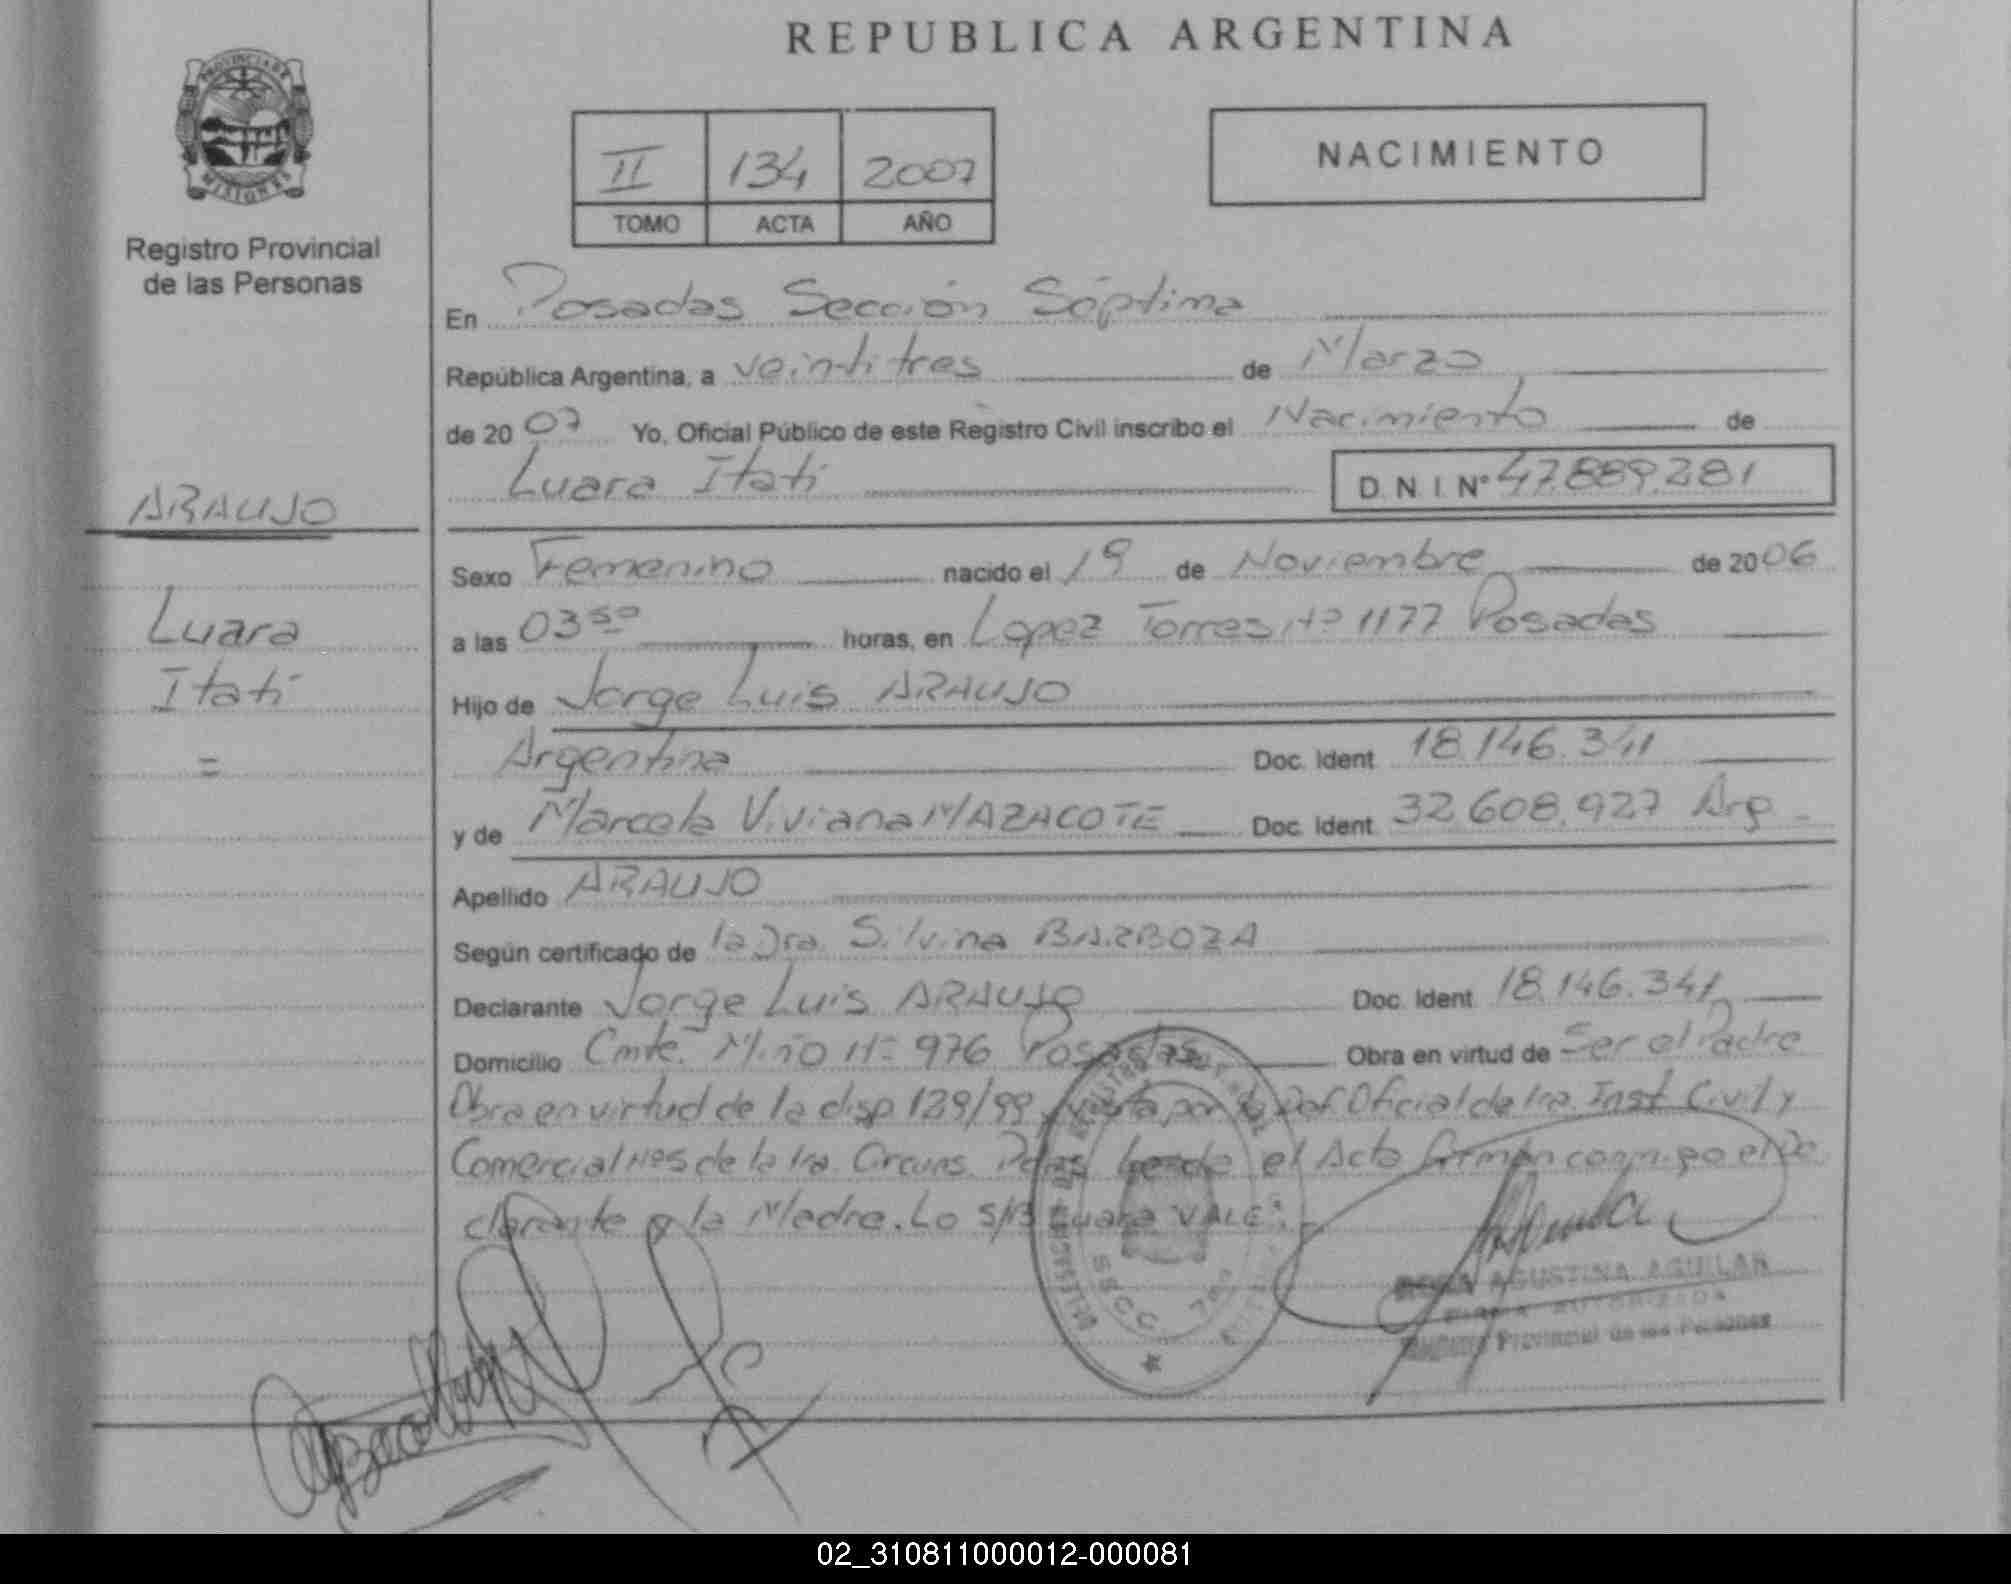 REPUBLICA ARGENTINA
PROVINCIA DE
MISIONES
Registro Provincial
de las Personas
II 134 2007
TOMO ACTA AÑO
NACIMIENTO
En Posadas Sección Séptima
República Argentina, a veintitres de Marzo
de 2007 Yo, Oficial Público de este Registro Civil inscribo el Nacimiento de
Luara Itatí D.N.I. Nº 47.889.281
ARAUJO
Luara
Itatí
=
Sexo Femenino nacido el 19 de Noviembre de 2006
a las 03 50 horas, en Lopez Torres Nº 1177 Posadas
Hijo de Jorge Luis ARAUJO
Argentina Doc. Ident. 18.146.341
y de Marcela Viviana MAZACOTE Doc. Ident. 32.608.927 Arg
Apellido ARAUJO
Según certificado de la Dra. Silvina BARBOZA
Declarante Jorge Luis ARAUJO Doc. Ident. 18.146.341
Domicilio Cmte. Miño Nº 976 Posadas Obra en virtud de Ser el Padre
Obra en virtud de la disp. 129/99 por la Oficial de 1ra. Inst. Civil y
Comercial Nº5 de la 1ra. Circuns. el Acto firman conmigo el De
clarante y la Madre. Lo S/B Luara VALE.
SSCC
ROSA AGUSTINA AGUILAR
FIRMA AUTORIZADA
Provincial de las Personas
02_310811000012-000081